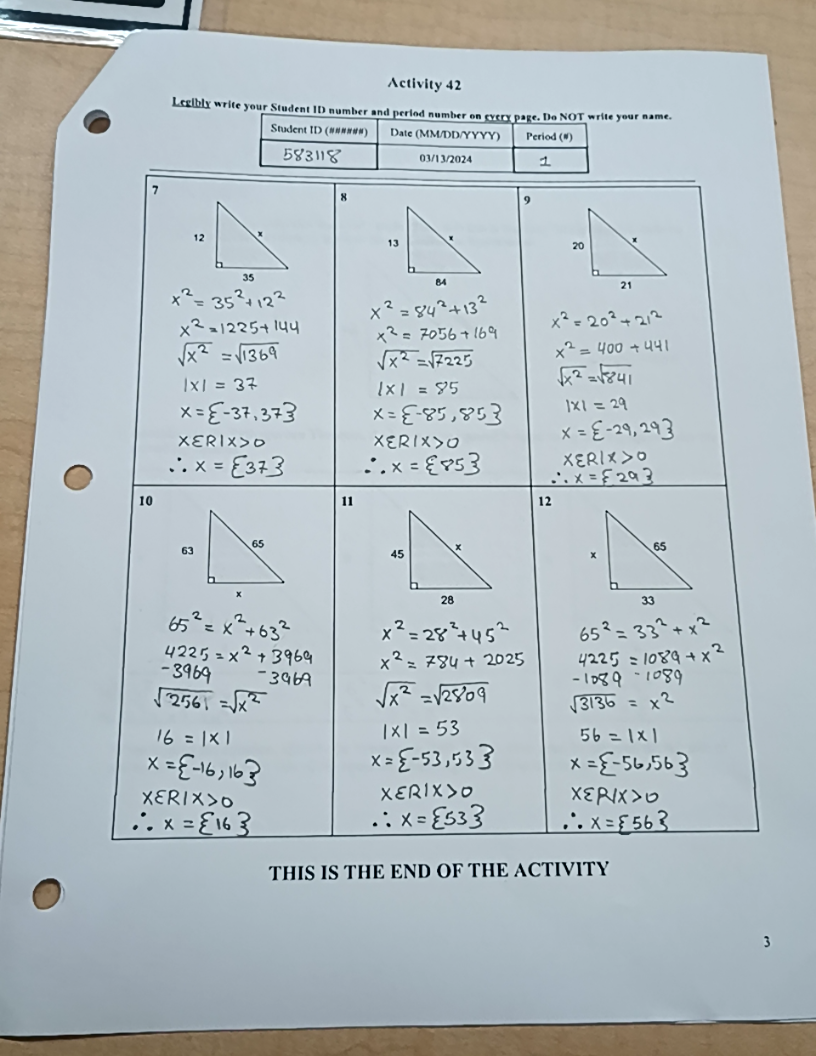 Activity 42
Legibly write your Student ID number and period number on every page. Do NOT write your name.
Student ID (######) Date (MM/DD/YYYY) Period (#)
583118 03/13/2024 1
7
12
x
35
x² = 35² + 12²
x² = 1225 + 144
√x² = √1369
|x| = 37
x = {-37, 37}
xεR|x>0
∴ x = {37}
8
13
x
84
x² = 84² + 13²
x² = 7056 + 169
√x² = √7225
|x| = 85
x = {-85, 85}
xεR|x>0
∴ x = {85}
9
20
x
21
x² = 20² + 21²
x² = 400 + 441
√x² = √841
|x| = 29
x = {-29, 29}
xεR|x>0
∴ x = {29}
10
63
65
x
65² = x² + 63²
4225 = x² + 3969
-3969 -3969
√2561 = √x²
16 = |x|
x = {-16, 16}
xεR|x>0
∴ x = {16}
11
45
x
28
x² = 28² + 45²
x² = 784 + 2025
√x² = √2809
|x| = 53
x = {-53, 53}
xεR|x>0
∴ x = {53}
12
x
65
33
65² = 33² + x²
4225 = 1089 + x²
-1089 -1089
√3136 = x²
56 = |x|
x = {-56, 56}
xεR|x>0
∴ x = {56}
THIS IS THE END OF THE ACTIVITY
3